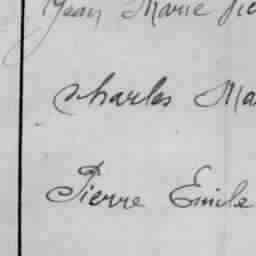 Jean Marie
Charles
Pierre Emile